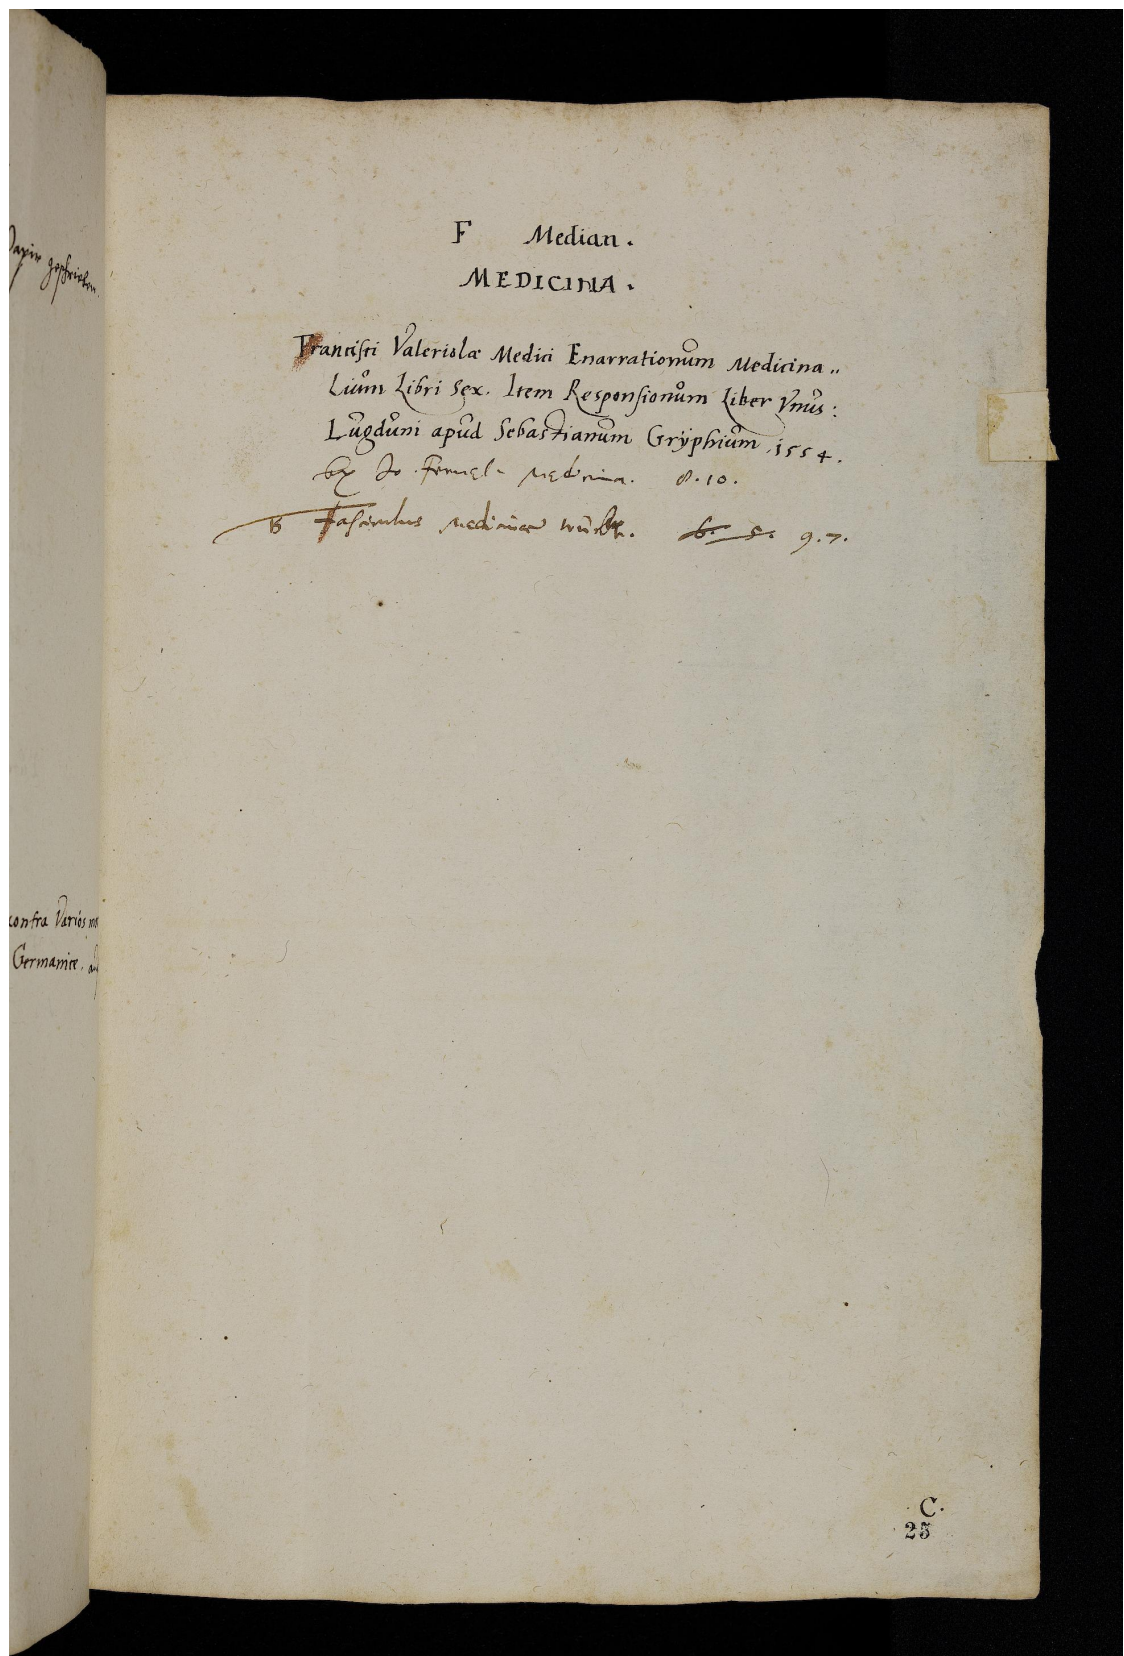 Papir geschrieben.
contra Varios
Germanice.
F Median.
MEDICINA.
Francisci Valeriolæ Medici Enarrationum Medicina„
Lium Libri Sex. Item Responsionum Liber Vnus:
Lugduni apud Sebastianum Gryphium .1554.
Jo. Fernel. Medicina. 8.10.
B Fasciculus Medicinæ 6. 5. 9.7.
C.
25